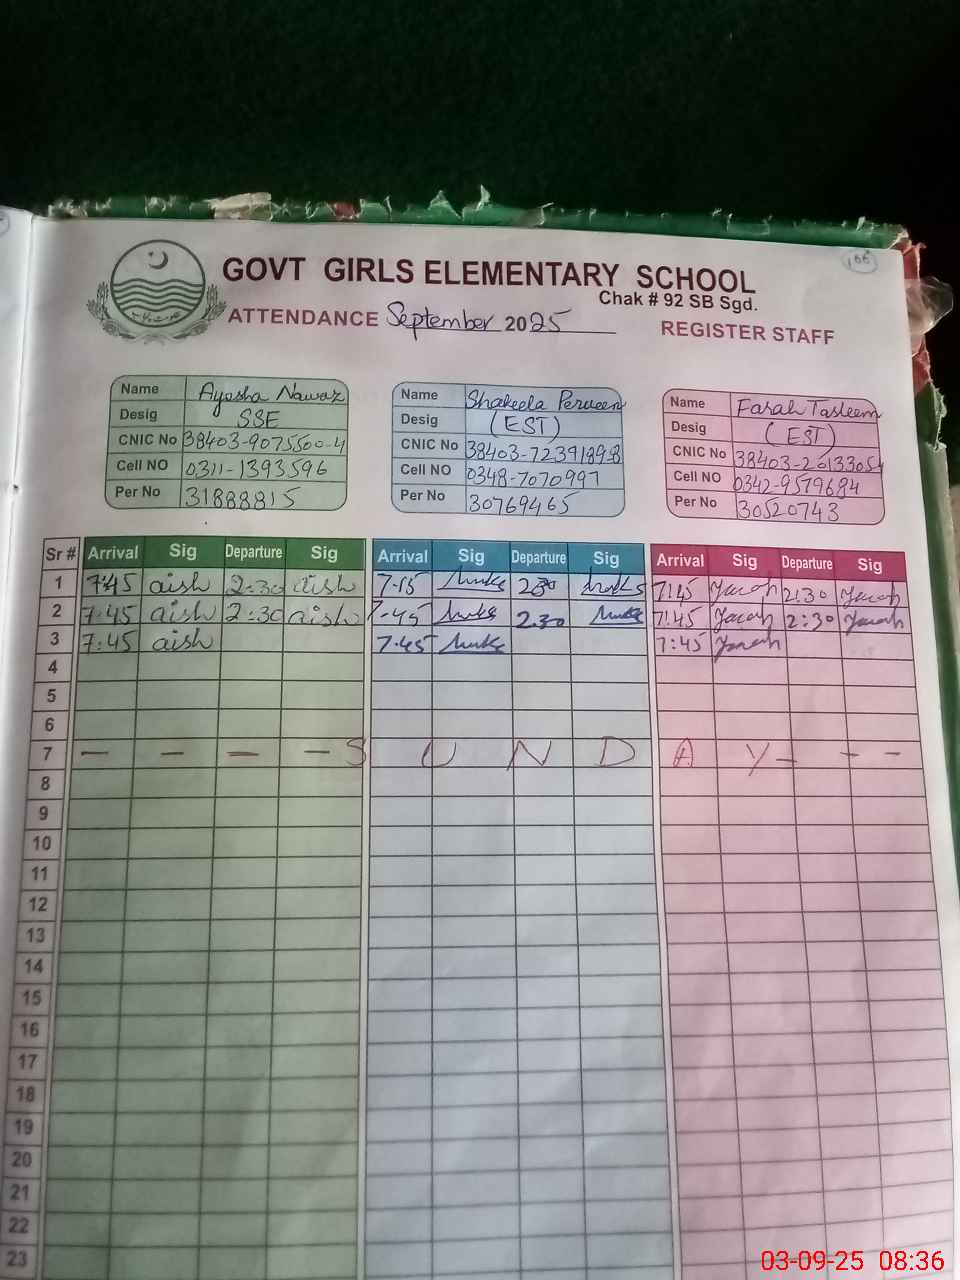 166
GOVT GIRLS ELEMENTARY SCHOOL
Chak # 92 SB Sgd.
ATTENDANCE September 2025 REGISTER STAFF
Name Ayesha Nawaz
Desig SSE
CNIC No 38403-9075500-4
Cell NO 0311-1393596
Per No 31888815
Name Shakeela Perveen
Desig (EST)
CNIC No 38403-7239189-8
Cell NO 0348-7070997
Per No 30769465
Name Farah Tasleem
Desig (EST)
CNIC No 38403-2013305-
Cell NO 0342-9579684
Per No 30520743
Sr # Arrival Sig Departure Sig Arrival Sig Departure Sig Arrival Sig Departure Sig
1 7:45 aish 2:30 aish 7-15 230 7:45 Farah 2:30 Farah
2 7:45 aish 2:30 aish 7-45 2.30 7:45 Farah 2:30 Farah
3 7:45 aish 7.45 7:45 Farah
4
5
6
7 - - - - S U N D A Y - - -
8
9
10
11
12
13
14
15
16
17
18
19
20
21
22
23
03-09-25 08:36